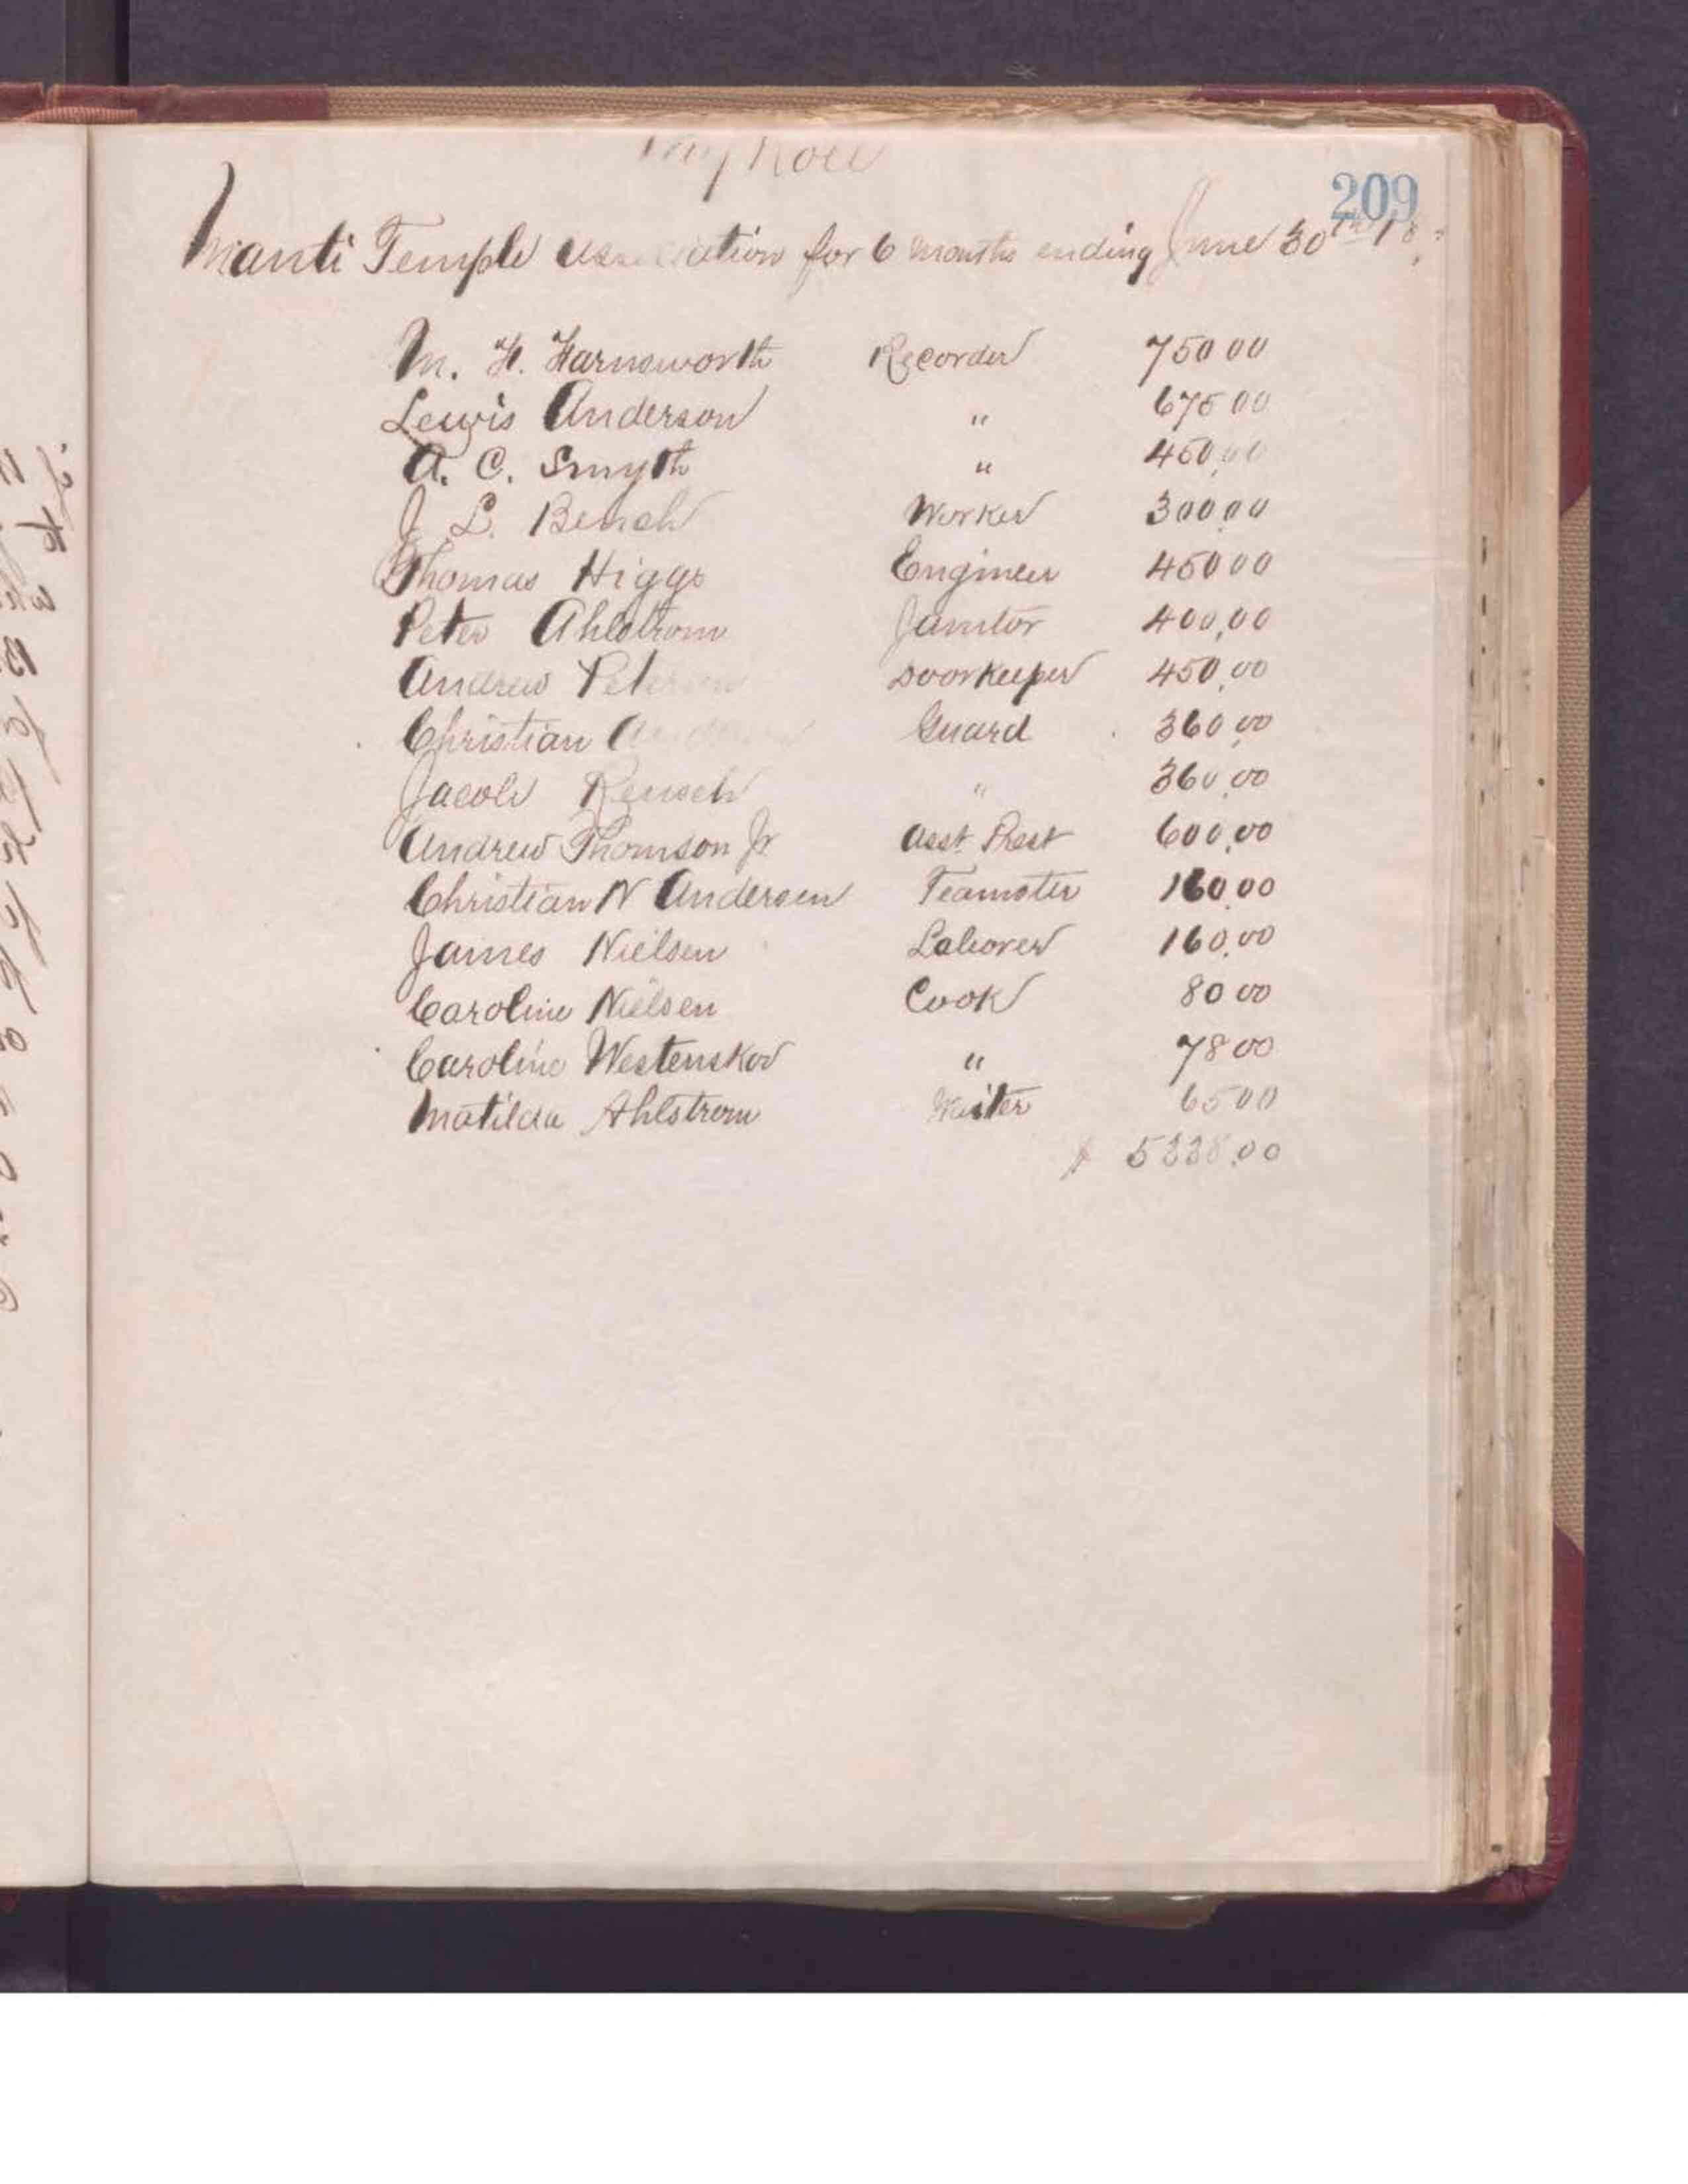 Pay Roll
209
Manti Temple Association for 6 months ending June 30th
M. F. Farnsworth Recorder 750 00
Lewis Anderson " 675 00
A. C. Smyth " 450.00
J. L. Bench Worker 300.00
Thomas Higgs Engineer 450 00
Peter Ahlstrom Janitor 400,00
Andrew Petersen Doorkeeper 450,00
Christian Guard 360,00
Jacob Reusch " 360,00
Andrew Thomson Jr Asst. Prest 600,00
Christian N Andersen Teamster 160,00
James Nielsen Laborer 160.00
Caroline Nielsen Cook 80 00
Caroline Westenskov " 78 00
Matilda Ahlstrom Waiter 65 00
$ 5338.00